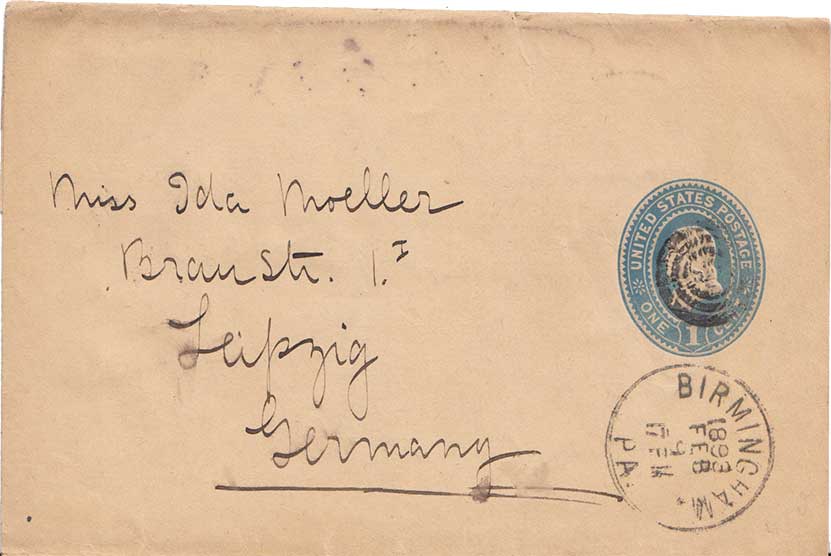 Miss Ida Moeller
Braustr. 1.I
Leipzig
Germany
UNITED STATES POSTAGE
ONE 1 CENT
BIRMINGHAM.
1893
FEB
9
PA.